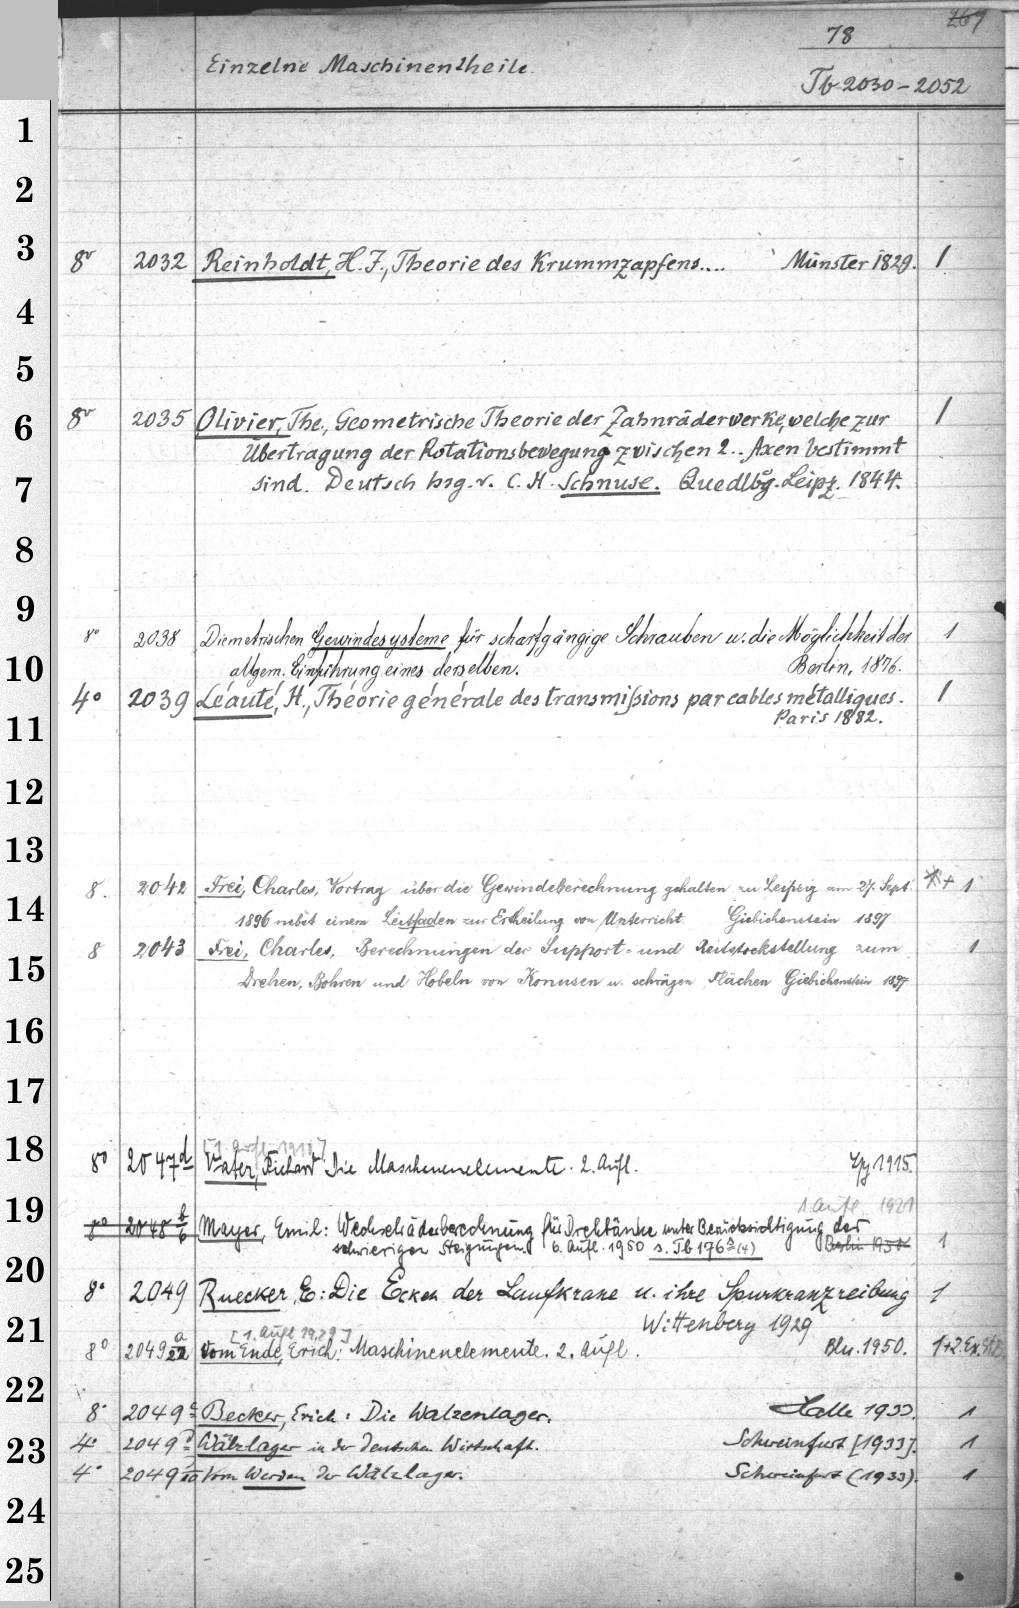 269
78
Einzelne Maschinentheile.
Tb 2030-2052
1
2
3
8° 2032 Reinholdt, H. F., Theorie des Krummzapfens.... Münster 1829. 1
4
5
6
8° 2035 Olivier, The., Geometrische Theorie der Zahnräderwerke, welche zur 1
Übertragung der Rotationsbewegung zwischen 2.. Axen bestimmt
7
sind. Deutsch hsg. v. C. H. Schnuse. Quedlbg. Leipz. 1844.
8
9
8° 2038 Die metrischen Gewindesysteme für scharfgängige Schrauben u. die Möglichkeit der 1
10
allgem. Einführung eines derselben. Berlin, 1876.
4° 2039 Léauté, H., Théorie générale des transmissions par cables métalliques. 1
11
Paris 1882.
12
13
8. 2042 Frei, Charles, Vortrag über die Gewindeberechnung gehalten zu Leipzig am 27. Sept. *+ 1
14
1896 nebst einem Leitfaden zur Ertheilung von Unterricht Giebichenstein 1897
8 2043 Frei, Charles, Berechnungen der Support- und Reitstockstellung zum 1
15
Drehen, Bohren und Hobeln von Konusen u. schrägen Flächen Giebichenstein 1897
16
17
18
[1. Aufl. 1910]
8° 2047d Vater, Richard Die Maschinenelemente. 2. Aufl. Lpz 1915.
19
1 Aufl. 1921
8° 2048 b/6 Mayer, Emil: Wechselräderberechnung für Drehbänke unter Berücksichtigung der
schwieriger Steigungen. 6. Aufl. 1950 s. Tb 176 a(4) Berlin 1950 1
20
8° 2049 Ruecker, E: Die Ecken der Laufkrane u. ihre Spurkranzreibung 1
Wittenberg 1929
21
[1. Aufl 1929]
8° 2049 a/22 vom Ende, Erich: Maschinenelemente. 2. Aufl. Bln. 1950. 1+2.Ex.
22
8° 2049c Becker, Erich: Die Walzenlager. Halle 1933. 1
23
4° 2049 Wälzlager in der Deutschen Wirtschaft. Schweinfurt [1933]. 1
4° 2049 Vom Werden der Wälzlager. Schweinfurt (1933). 1
24
25